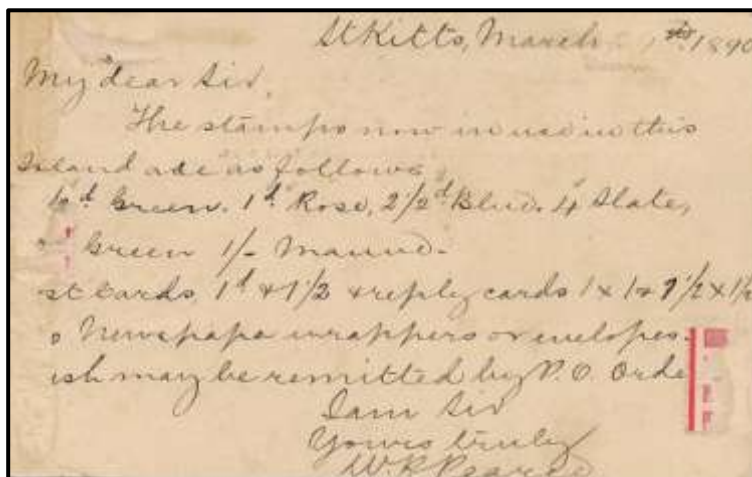 St Kitts, March 1st 1890
My dear Sir,
The stamps now in use in this
Island are as follows
½d Green. 1d Rose, 2½d Blue. 4d Slate,
Green 1/- Mauve.
st Cards 1d & 1½ & reply cards 1 x 1 & 1½ x 1½
o Newspape wrappers or envelopes.
ish may be remitted by P.O. Orde
I am Sir
Yours truly
W. R. Pearce